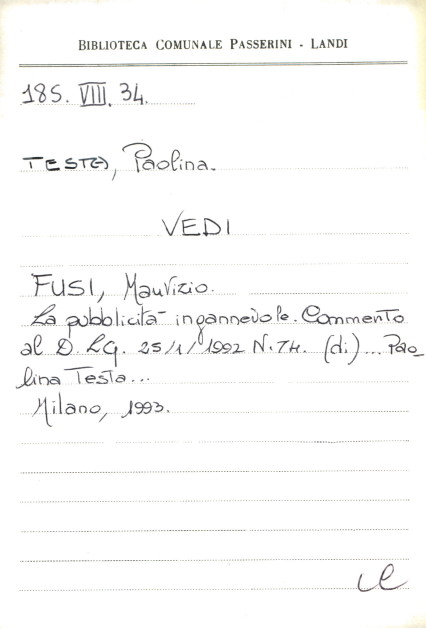 BIBLIOTECA COMUNALE PASSERINI - LANDI
185. VIII. 34.
TESTA, Paolina.
VEDI
FUSI, Maurizio.
La pubblicità ingannevole. Commento
al D. Lg. 25/1/1992 N. 74. (di)... Pao_
lina Testa...
Milano, 1993.